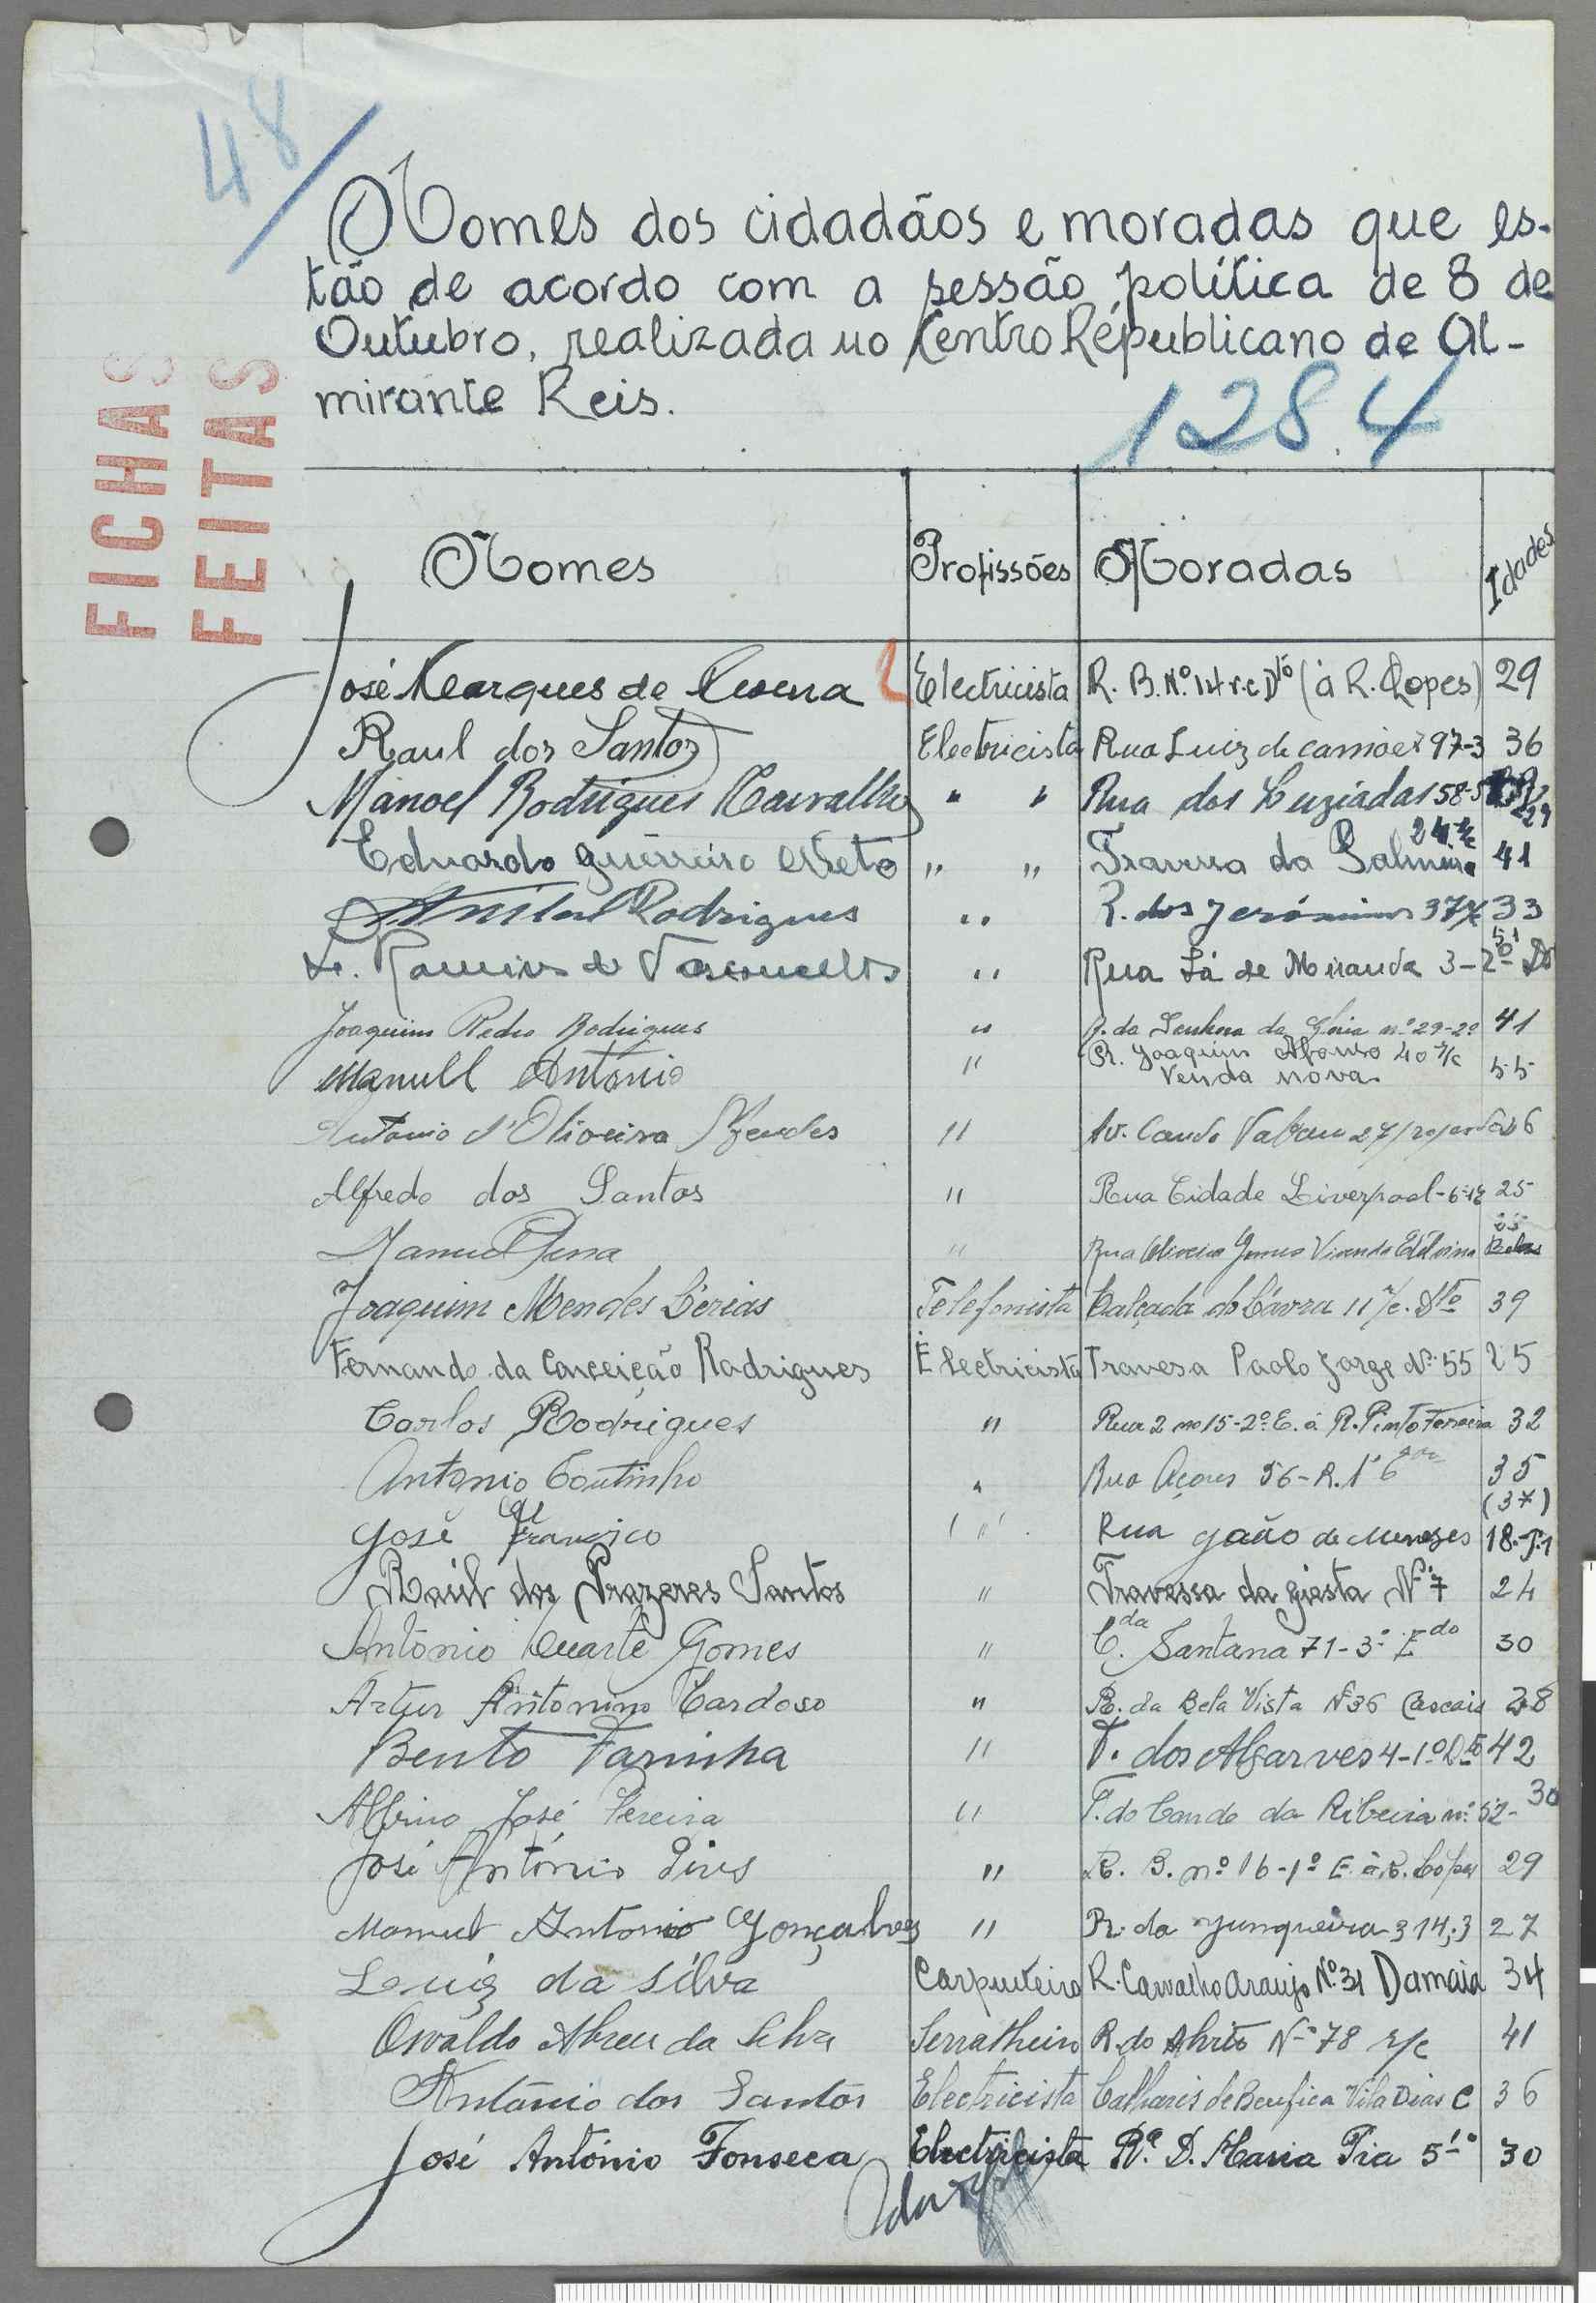 48
Nomes dos cidadãos e moradas que es-
tão de acordo com a sessão política de 8 de
Outubro, realizada no Centro Républicano de Al-
mirante Reis.
128.4
FICHAS
FEITAS
Nomes Profissões Moradas Idades
José Marques de Electricista R. B. Nº 14 r.c Dtº (à R. Lopes) 29
Raul dos Santos Electricista Rua Luiz de camões 97-3 36
Manoel Rodrigues Carvalho " " Rua dos Luziadas 58-5 29
Eduardo guerreiro Neto " " Travessa da Palmeira 24 r/c 41
Anibal Rodrigues " R. dos Jerónimos 37 33
Ramiro de Vasconcellos " Rua Sá de Miranda 3-2º Dº 51
Joaquim Pedro Rodrigues " R. da Senhora da Glória nº 29-2º 41
Manuel António " R. Joaquim Afonso 40 r/c
Venda nova 55
Antonio d'Oliveira Mendes " Av. Conde Valbom 27 26
Alfredo dos Santos " Rua Cidade Liverpool-6-1º 25
Manuel Pena " Rua Oliveira Gomes Vivenda Etelvina 25
Joaquim Mendes Lérias Telefonista Calçada do Lavra 11 r/c. Dto 39
Fernando da Conceição Rodrigues Electricista Travesa Paolo Jorge Nº 55 25
Carlos Rodrigues " Rua 2 no 15-2º E. á R. Pinto Ferreira 32
Antonio Coutinho " Rua Açores 56-R. 35
José Francisco " Rua João de Menezes 18-P-1 (37)
Raúl dos Prazeres Santos " Travessa da giesta Nº 7 24
António Duarte Gomes " C.da Santana 71-3º Edo 30
Artur Antonino Cardoso " R. da Bela Vista Nº 36 Cascais 28
Bento Farinha " T. dos Algarves 4-1º Dto 42
Albino José Pereira " T. do Conde da Ribeira nº 52- 30
José António Pires " R. B. nº 16-1º E. à R. Lopes 29
Manuel Antonio Gonçalves " R. da Junqueira 314,3 27
Luiz da Silva Carpinteiro R. Carvalho Araujo Nº 31 Damaia 34
Osvaldo Abreu da Silva Serralheiro R. do Alvito Nº 78 r/c 41
António dos Santos Electricista Calhariz de Benfica Vila Dias C 36
José António Fonseca Electricista Rª. D. Maria Pia 5-1º 30